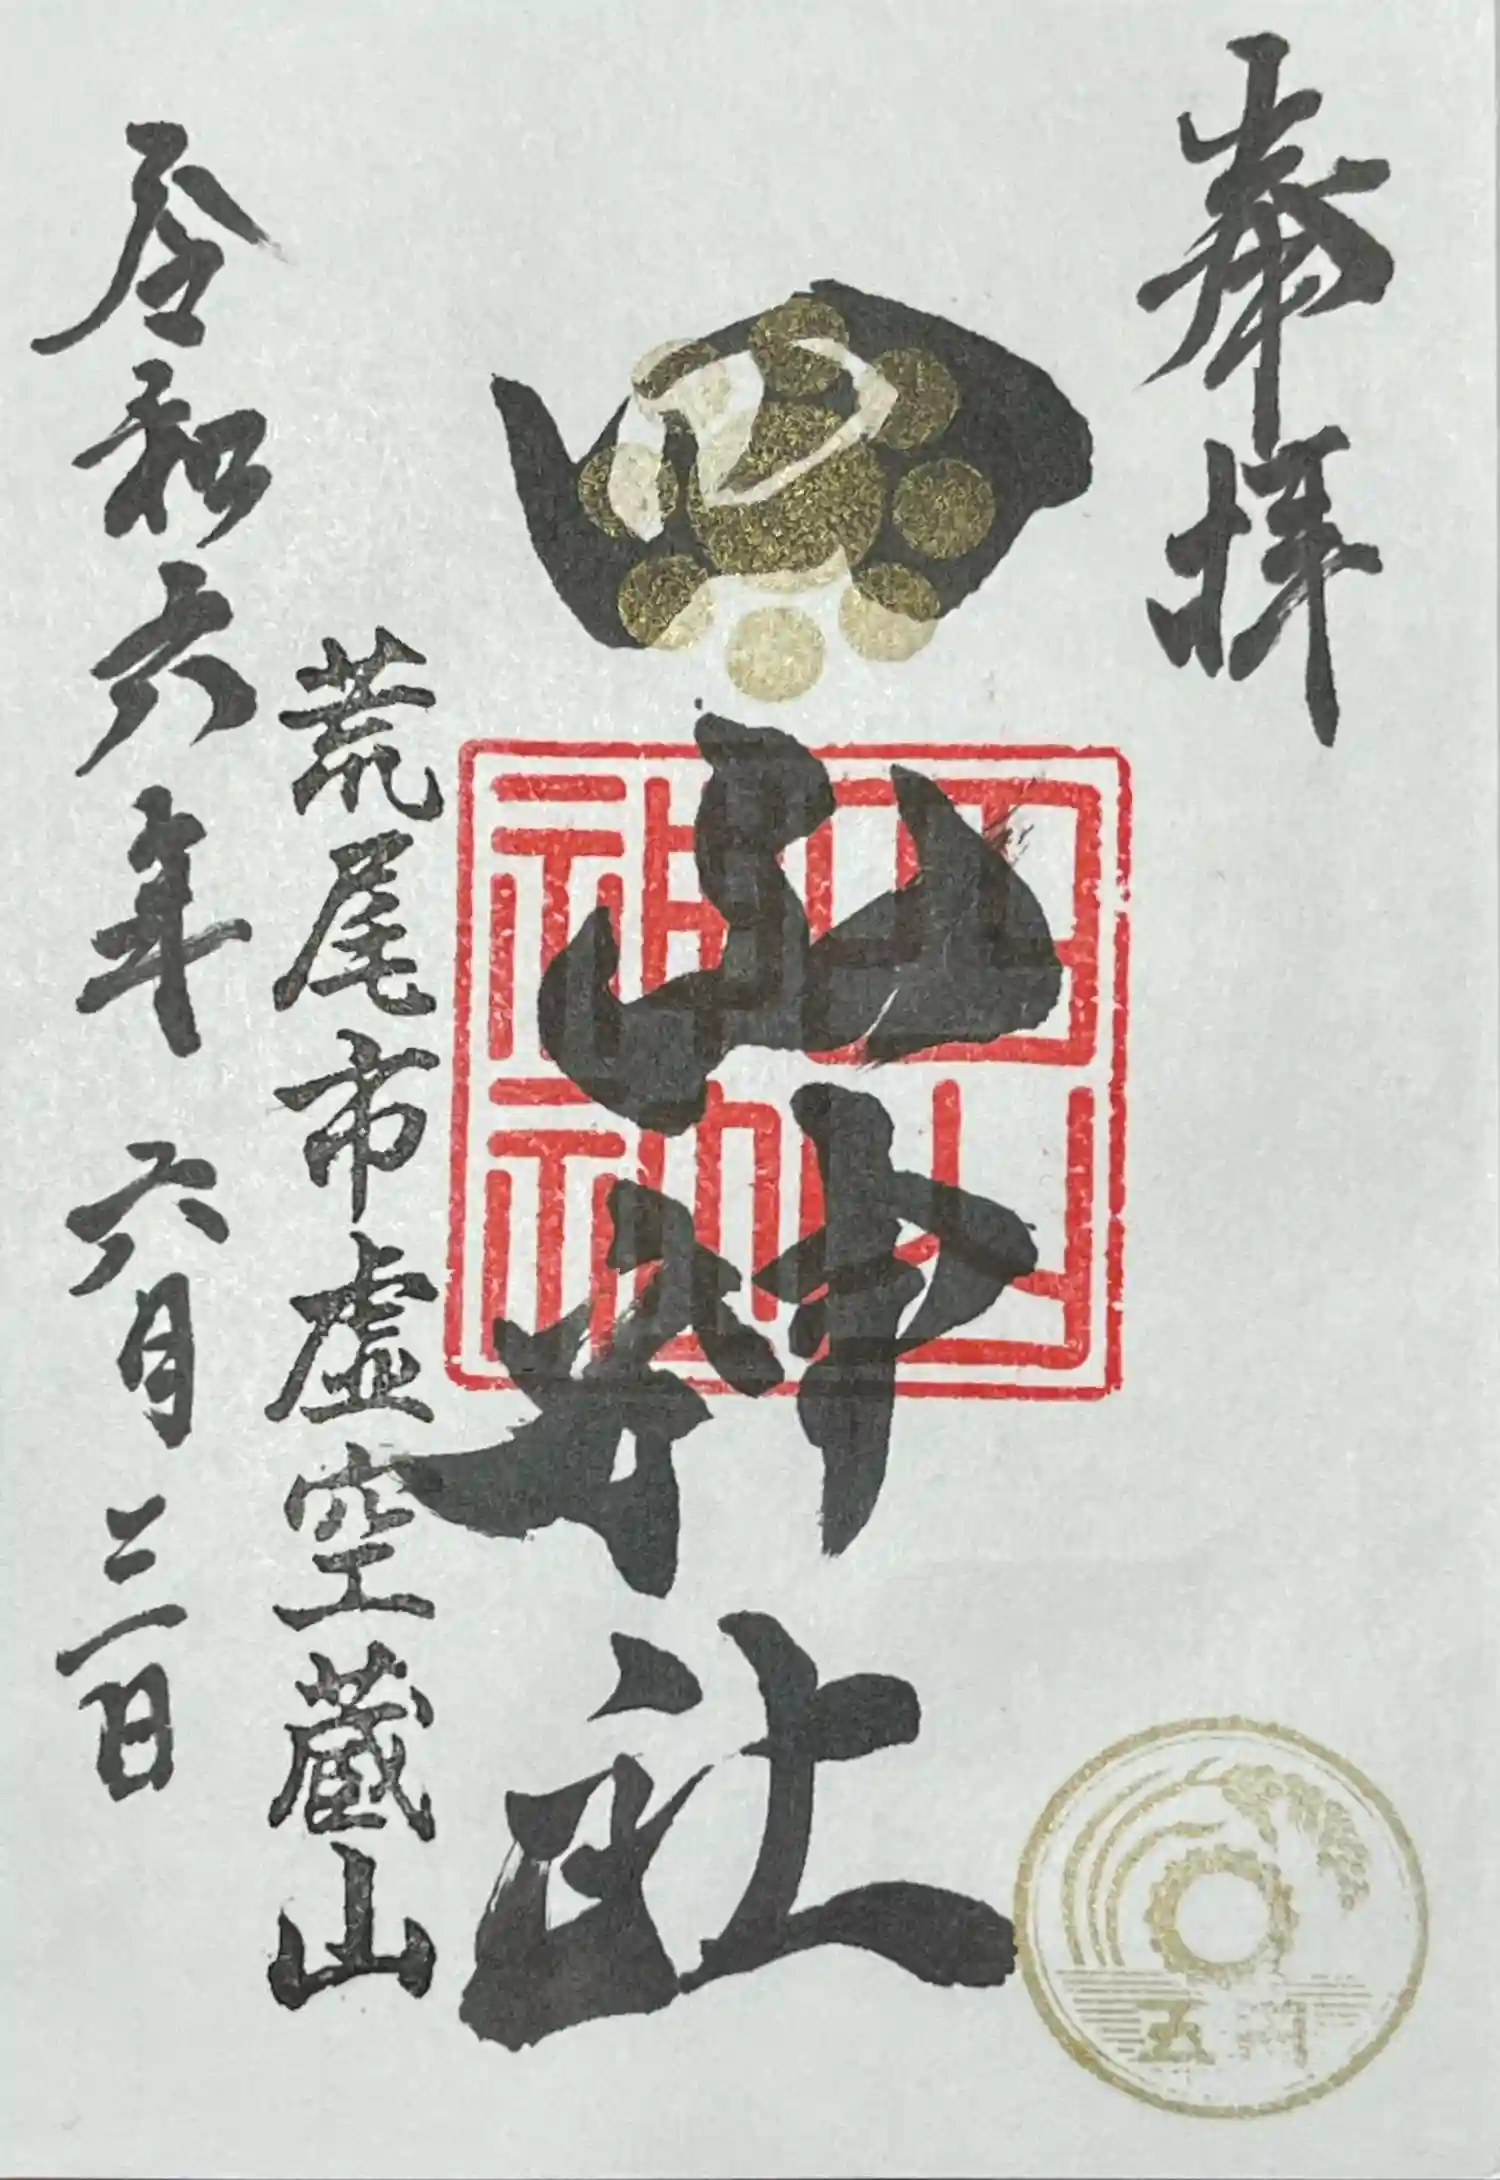 奉拝
四山神社
四山神社
五円
荒尾市虚空蔵山
令和六年六月二日